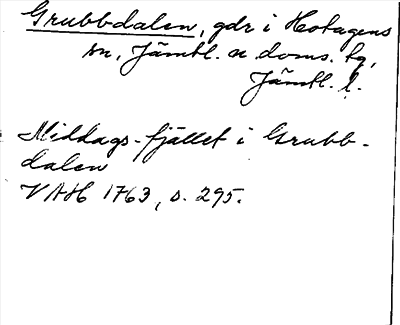 Grubbdalen, gdr i Hotagens
sn, Jämtl. n. doms. tg,
Jämtl. l.
Middags-fjället i Grubb-
dalen
VAH 1763, s. 295.